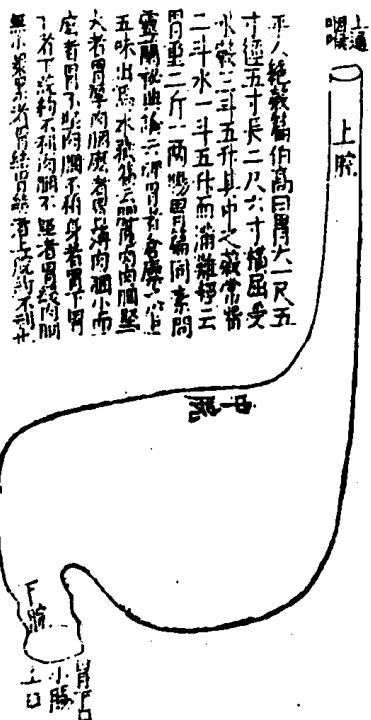 上通
咽喉
上脘
平人絕穀篇伯高曰胃大一尺五
寸徑五寸長二尺六寸橫屈受
水穀三斗五升其中之穀常留
二斗水一斗五升而滿難經云
胃重二斤一兩腸胃篇同素問
靈蘭秘典論云脾胃者倉廩之官
五味出焉本藏篇云䐃肉䐃堅
大者胃厚肉䐃麼者胃薄肉䐃小而
麼者胃不堅肉䐃不稱身者胃下胃
下者下脘約不利肉䐃不堅者胃緩肉䐃
無小裹累者胃急肉䐃多小裹累者胃結胃結者上脘約不利
中脘
下脘
胃下口
小腸
上口